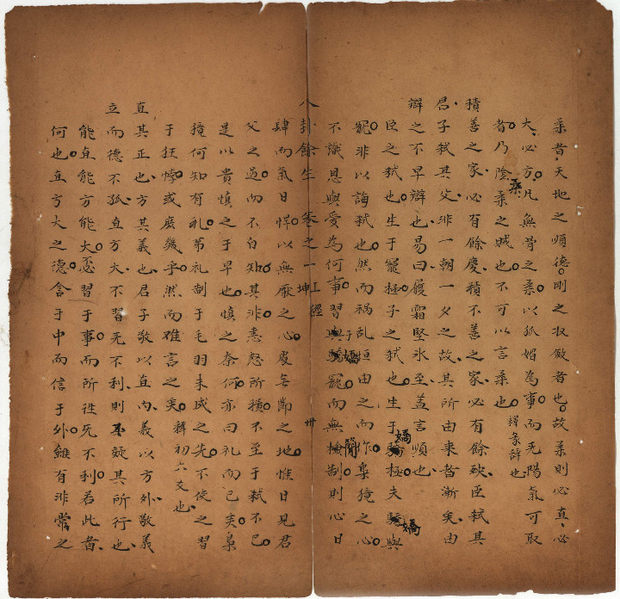 柔者天地之順德剛之収斂者也故柔則必直必
大必方凡無骨之柔以狐媚為事而无陽氣可取
者乃陰柔之賊也不可以言柔也 釋彖辭也
積善之家必有餘慶積不善之家必有餘殃臣弒其
君子弒其父非一朝一夕之故其所由來者漸矣由
辯之不早辯也易曰履霜堅氷至蓋言順也
臣之弒也生于寵極子之弒也生于驕極夫驕與
寵非以誨弒也然而禍乱恒由之而作梟獍之心
不識恩與愛為何事習于驕寵而與檢制則心日
八卦餘生 卷之一 上經 坤 卅
肆而氣日悍以無厭之心處每闹之地惟日見君
父之過而不自知其非恚怒所積不至于弒不已
是以貴慎之于早也慎之奈何亦曰礼而已矣梟
獍何知有礼苐礼制于毛羽未成之先不使之習
于狂悖或庶幾乎然而难言之矣 釋初六爻也
直其正也方其義也君子敬以直內義以方外敬義
立而德不孤直方大不習无不利則不疑其所行也
能直能方能大必習于事而所徃旡不利若此者
何也直方大之德含于中而信于外雖有非常之